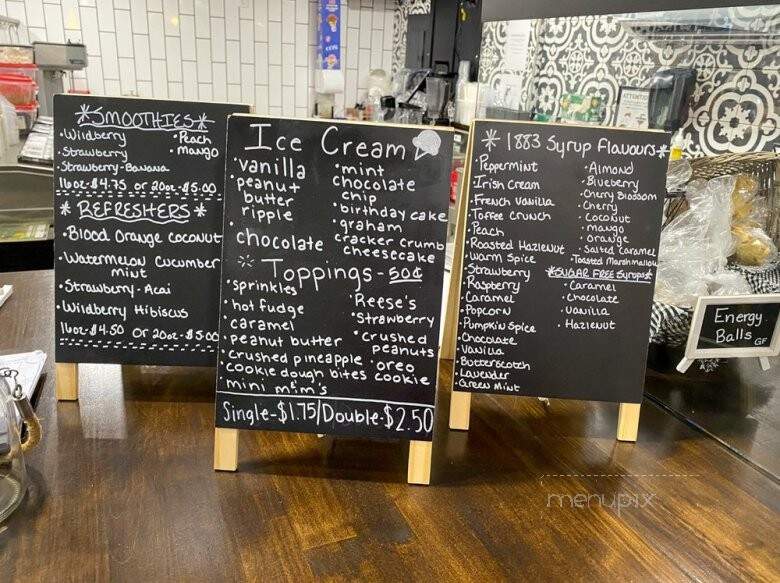 *SMOOTHIES*
• Wildberry
• Strawberry
• Strawberry-Banana
• Peach
• mango
16oz-$4.75 or 20oz-$5.00
* REFRESHERS *
• Blood Orange Coconut
• Watermelon Cucumber
mint
• Strawberry-Acai
• Wildberry Hibiscus
16oz-$4.50 or 20oz-$5.00
Ice Cream
• vanilla
• peanut
butter
ripple
• chocolate
• mint
chocolate
chip
• birthday cake
• graham
cracker crumb
cheesecake
Toppings-50¢
• sprinkles
• hot fudge
• caramel
• peanut butter
• crushed pineapple
• cookie dough bites
• mini m&m's
• Reese's
• Strawberry
• crushed
peanuts
• oreo
cookie
Single-$1.75/Double-$2.50
* 1883 Syrup Flavours*
• Peppermint
• Irish Cream
• French Vanilla
• Toffee Crunch
• Peach
• Roasted Hazlenut
• Warm Spice
• Strawberry
• Raspberry
• Caramel
• Popcorn
• Pumpkin Spice
• Chocolate
• Vanilla
• Butterscotch
• Lavender
• Green Mint
• Almond
• Blueberry
• Cherry Blossom
• Cherry
• Coconut
• mango
• orange
• Salted Caramel
• Toasted Marshmallow
*SUGAR FREE Syrups*
• Caramel
• Chocolate
• Vanilla
• Hazlenut
Energy
Balls GF
menupix